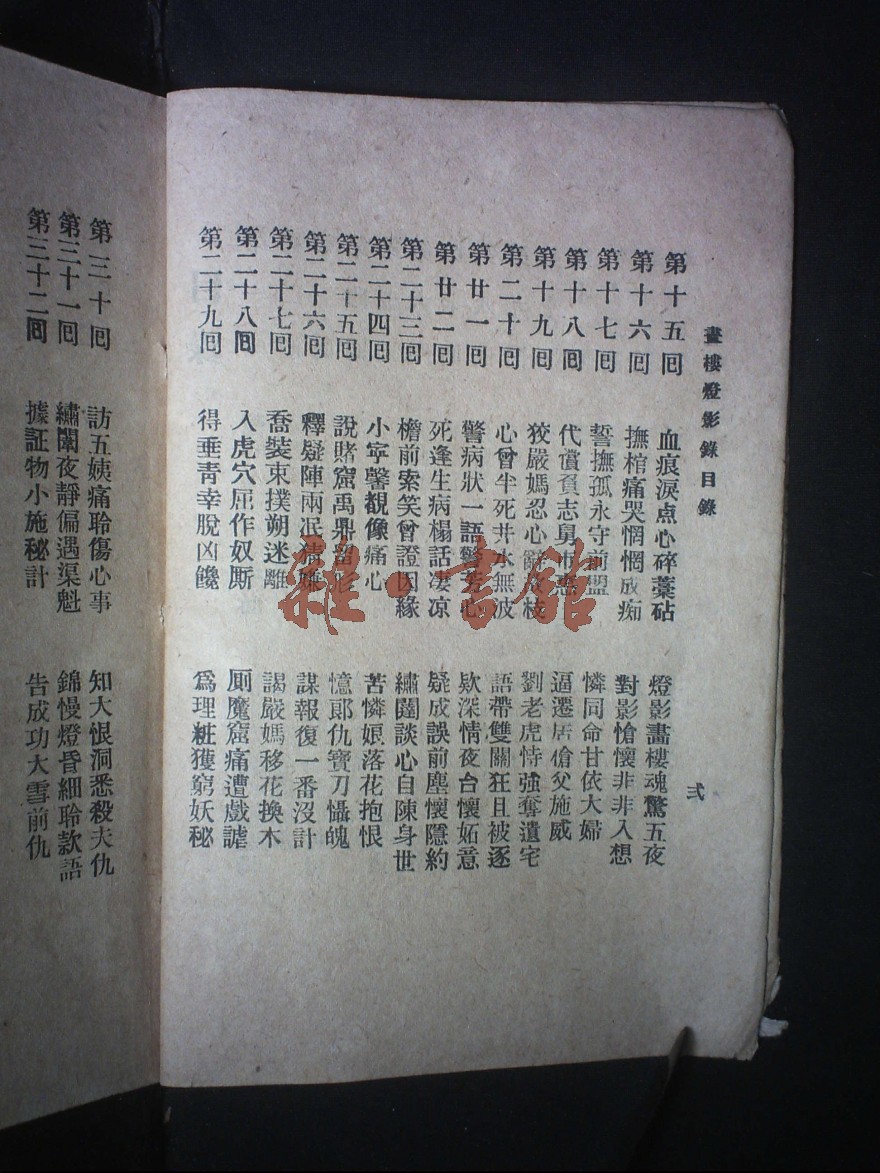 畫樓燈影錄目錄
弍
第十五回 血痕淚点心碎藁砧 燈影畫樓魂驚五夜
第十六回 撫棺痛哭惘惘成痴 對影愴懷非非入想
第十七回 誓撫孤永守前盟 憐同命甘依大婦
第十八回 代償負志舅市惠 逼遷居傖父施威
第十九回 狡嚴媽忍心辭故枝 劉老虎恃強奪遺宅
第二十回 心曾半死井水無波 語帶雙關狂且被逐
第廿一回 警病狀一語驚芳心 欵深情夜台懷妬意
第廿二回 死逢生病榻話凄凉 疑成誤前塵懷隱約
第二十三回 檐前索笑曾證因緣 繡闥談心自陳身世
第二十四回 小寧馨覩像痛心 苦憐娘落花抱恨
第二十五回 說賭窟禹鼎留形 憶郎仇寶刀懾魄
第二十六回 釋疑陣兩泯猜嫌 謀報復一番沒計
第二十七回 喬裝束撲朔迷離 謁嚴媽移花換木
第二十八回 入虎穴屈作奴厮 厕魔窟痛遭戲謔
第二十九回 得垂青幸脫凶饞 爲理粧獲窮妖秘
第三十回 訪五姨痛聆傷心事 知大恨洞悉殺夫仇
第三十一回 繡闈夜靜偏遇渠魁 錦幔燈昏細聆款語
第三十二回 據証物小施秘計 告成功大雪前仇
雜·書館